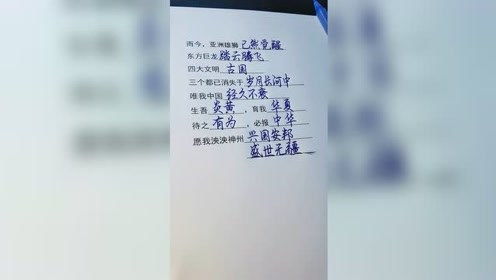 而今，亚洲雄狮已然觉醒
东方巨龙踏云腾飞
四大文明古国
三个都已消失于岁月长河中
唯我中国经久不衰
生吾炎黄，育我华夏
待之有为，必报中华
愿我泱泱神州兴国安邦
盛世无疆